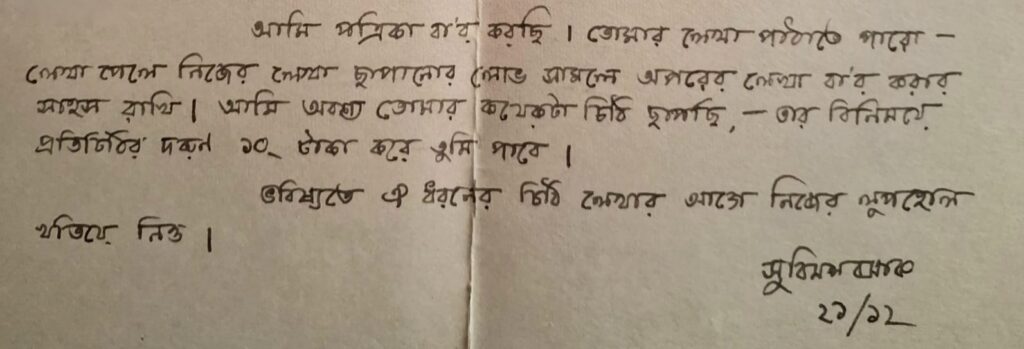 আমি পত্রিকা বা'র করছি । তোমার লেখা পাঠাতে পারো —
লেখা পেলে নিজের লেখা ছাপানোর লোভ সামলে অপরের লেখা বা'র করার
সাহস রাখি । আমি অবশ্য তোমার কয়েকটা চিঠি ছাপছি, — তার বিনিময়ে
প্রতিচিঠির দরুন ১০৲ টাকা করে তুমি পাবে ।
ভবিষ্যতে ঐ ধরনের চিঠি লেখার আগে নিজের লুপহোল
খতিয়ে নিও ।
সুবিমল বসাক
২১/১২